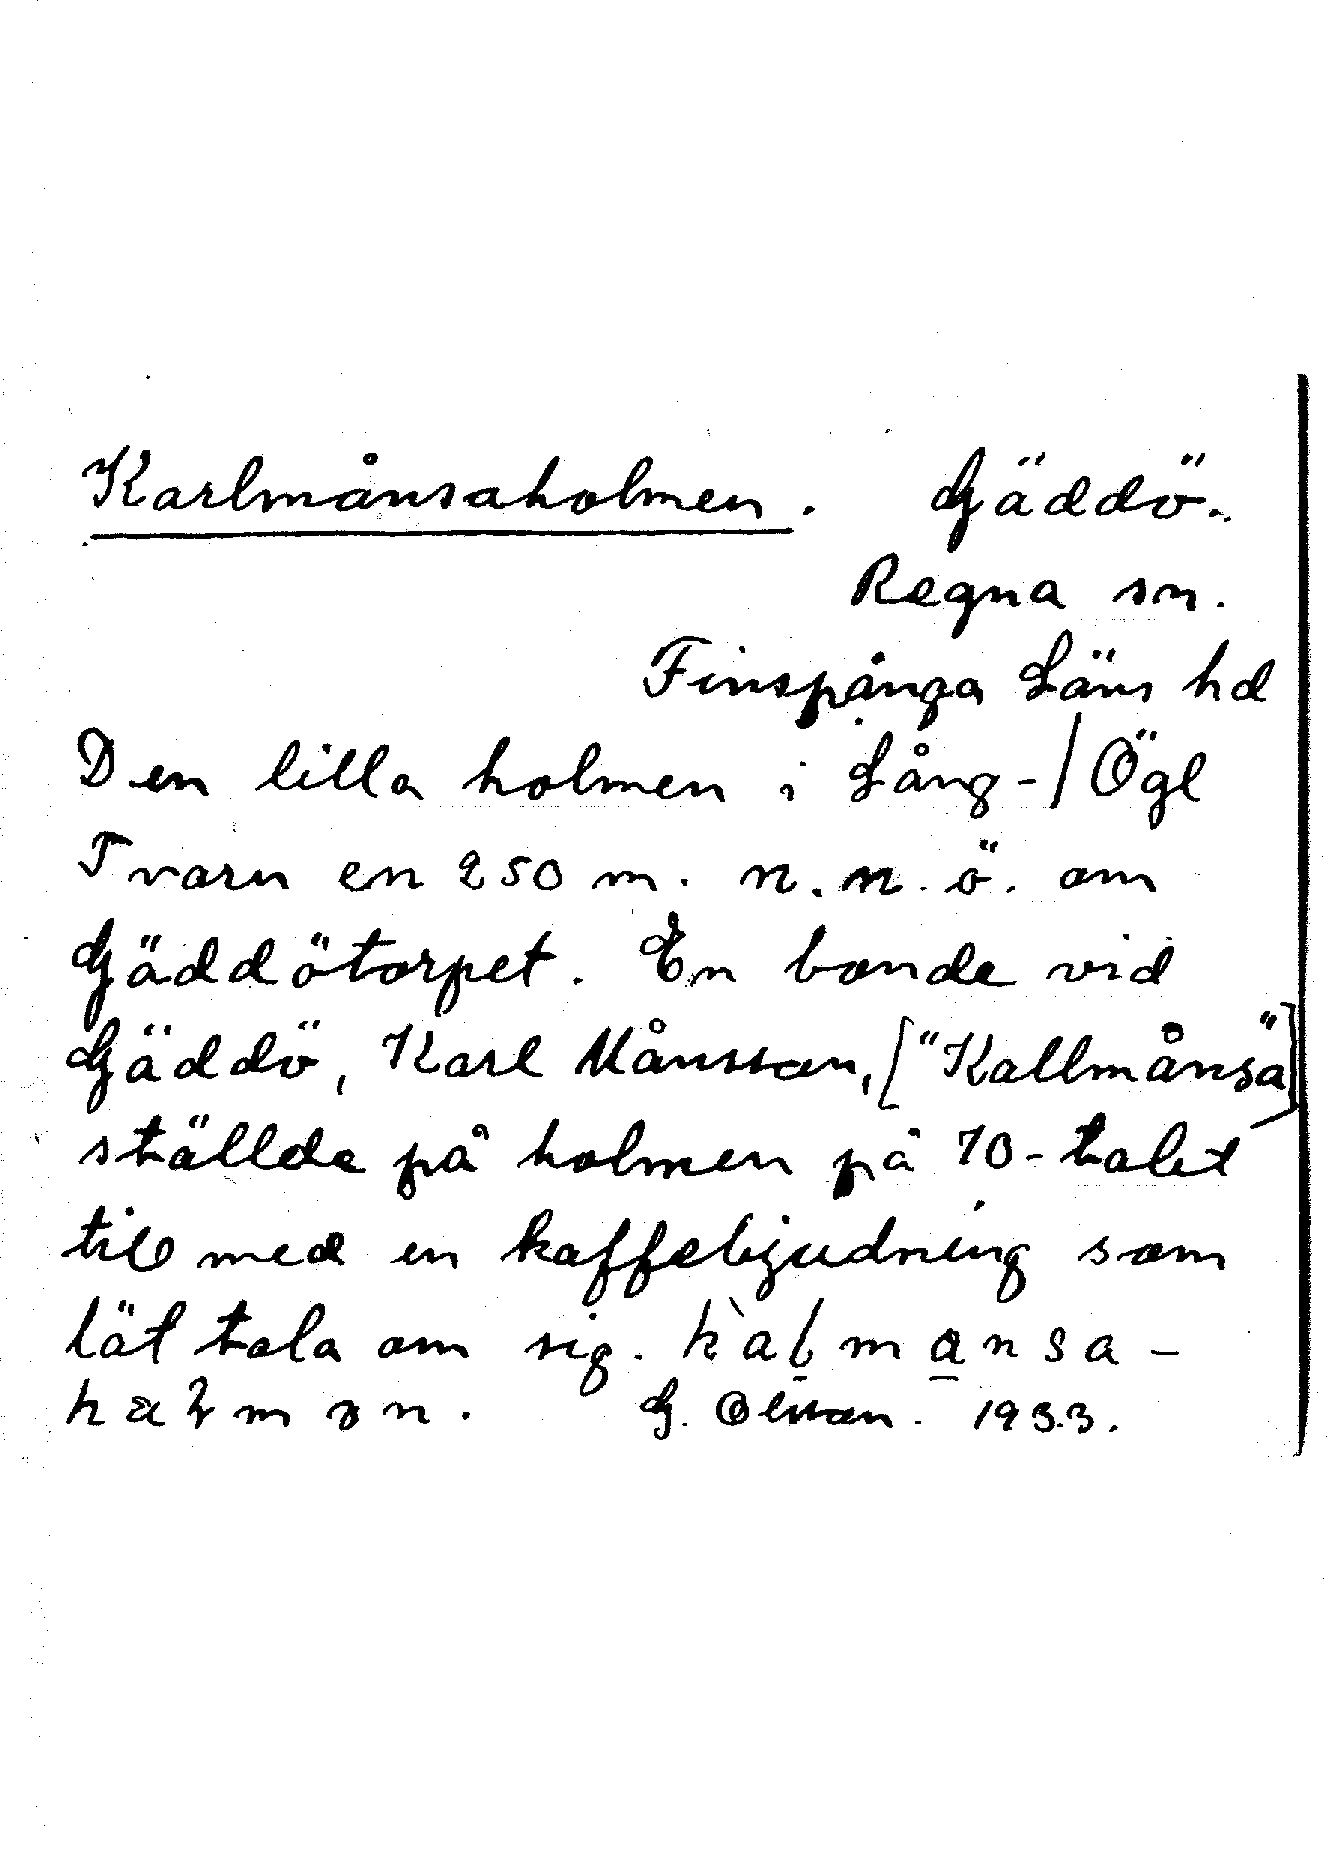 Karlmånsaholmen. Gäddö.
Regna sn.
Finspånga Läns hd
Den lilla holmen i Lång-/Ögl
Tvarn en 250 m. n.n.ö. om
Gäddötorpet. En bonde vid
Gäddö, Karl Månsson, ["Kallmånsa"]
ställde på holmen på 70-talet
till med en kaffebjudning som
lät tala om sig. kàlmansa-
halmən. G. Olsson. 1933.